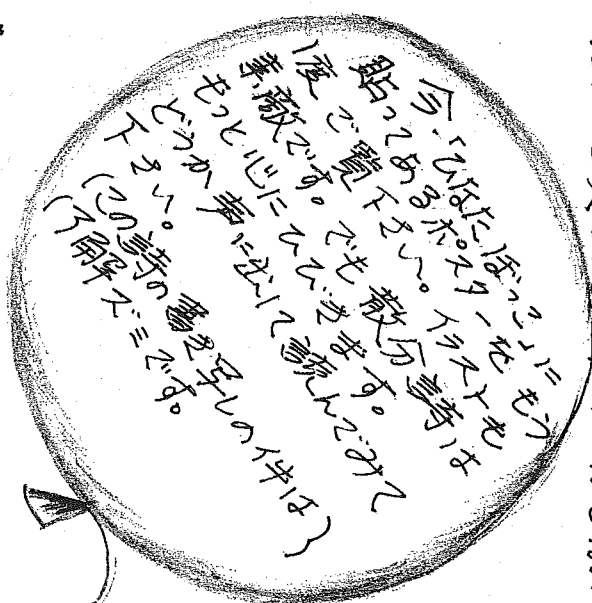 今、「ひなたぼっこ」に
貼ってあるポスターを もう
1度 ご覧下さい。イラストも
素敵です。でも散分詩は
もっと心にひびきます。
どうか声に出して読んでみて
下さい。
(この詩の書き写しの件は)
(了解ズミです。